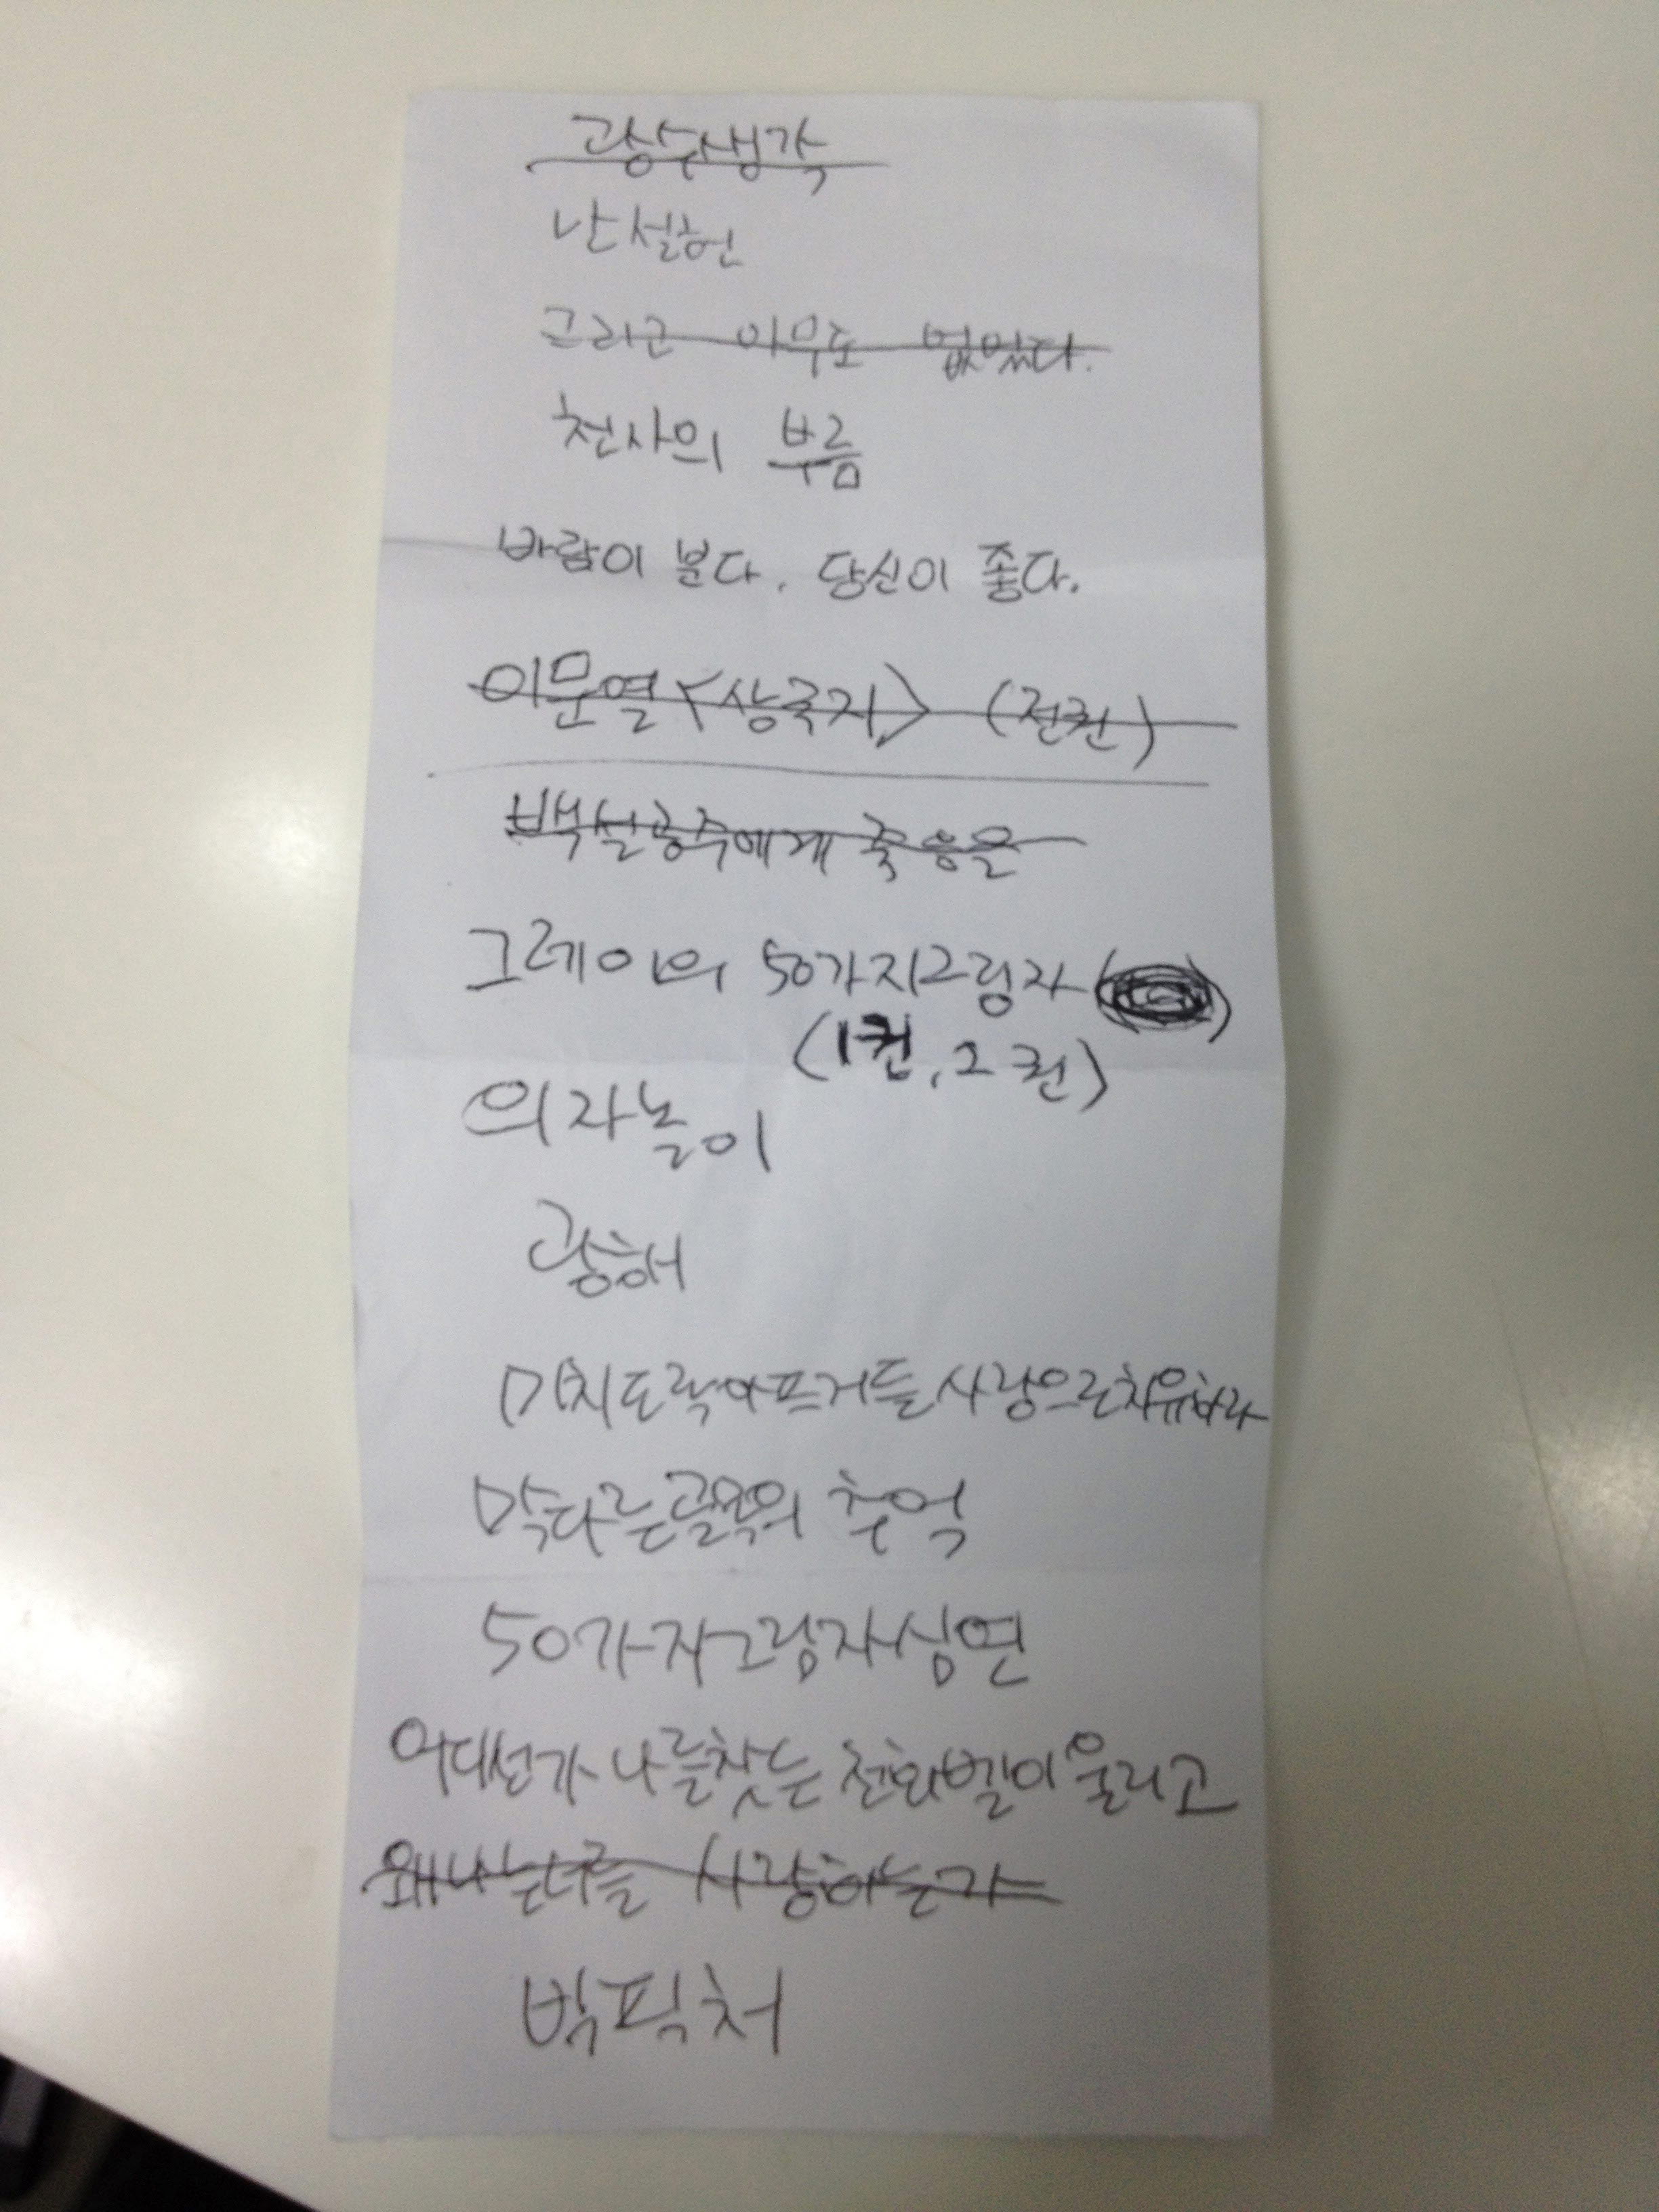 광수생각
난설헌
그리고 아무도 없었다.
천사의 부름
바람이 분다. 당신이 좋다.
이문열 <삼국지> (전권)
백설공주에게 죽음을
그레이의 50가지그림자
(1권, 2권)
의자놀이
광해
미치도록아프거든사랑으로치유하라
막다른골목의 추억
50가지그림자심연
어디선가 나를찾는 전화벨이 울리고
왜나는너를 사랑하는가
빅픽처